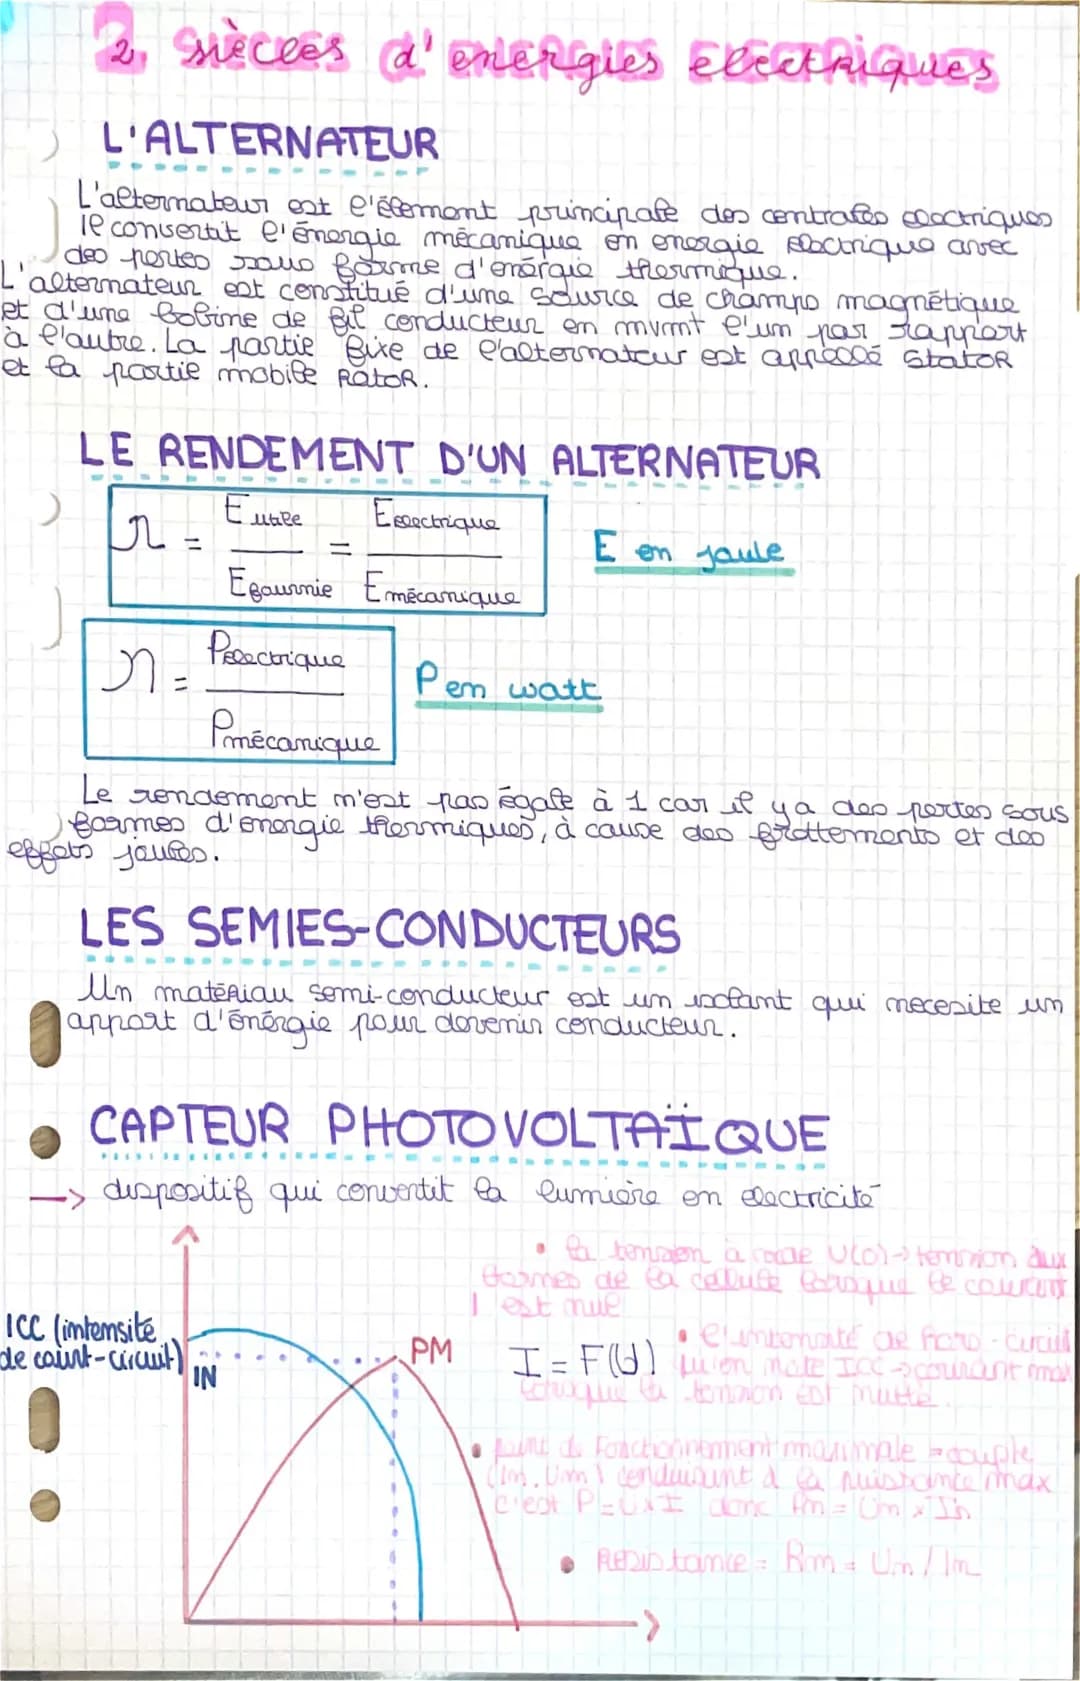 2 siècles d'energies electriques
L'ALTERNATEUR
L'alternateur est l'élement principale des centrales electriques
Ie consertit l'énergie mécanique en energie electrique avec
des pertes sous forme d'énérgie thermique.
L'alternateur est constitué d'une source de champs magnétique
et d'une bobine de fil conducteur en mvmt l'un par rapport
à l'autre. La partie fixe de l'alternateur est appellé stator
et la partie mobile Rator.
LE RENDEMENT D'UN ALTERNATEUR
η = Eutile / Efournie = Eelectrique / Emécanique
E en joule
η = Pelectrique / Pmécanique
P en watt
Le rendement n'est pas égale à 1 car il y a des pertes sous
formes d'énergie thermiques, à cause des frottements et des
effets joules.
LES SEMIES-CONDUCTEURS
Un matériau semi-conducteur est un isolant qui necesite un
apport d'énérgie pour devenir conducteur.
CAPTEUR PHOTOVOLTAÏQUE
→ dispositif qui convertit la lumière en electricité
• la tension à vide U(0) → tension aux
bornes de la cellule lorsque le courant
I est nul
ICC (intensité
de court-circuit)
IN
PM
I = F(U)
• l'intensité de court-circuit
qu'on note ICC → courant max
lorsque la tension est nulle.
• point de fonctionnement maximale = couple
(Im, Um) conduisant à la puissance max
c'est P = U x I donc Pm = Um x Im
• Resistance = Rm = Um / Im